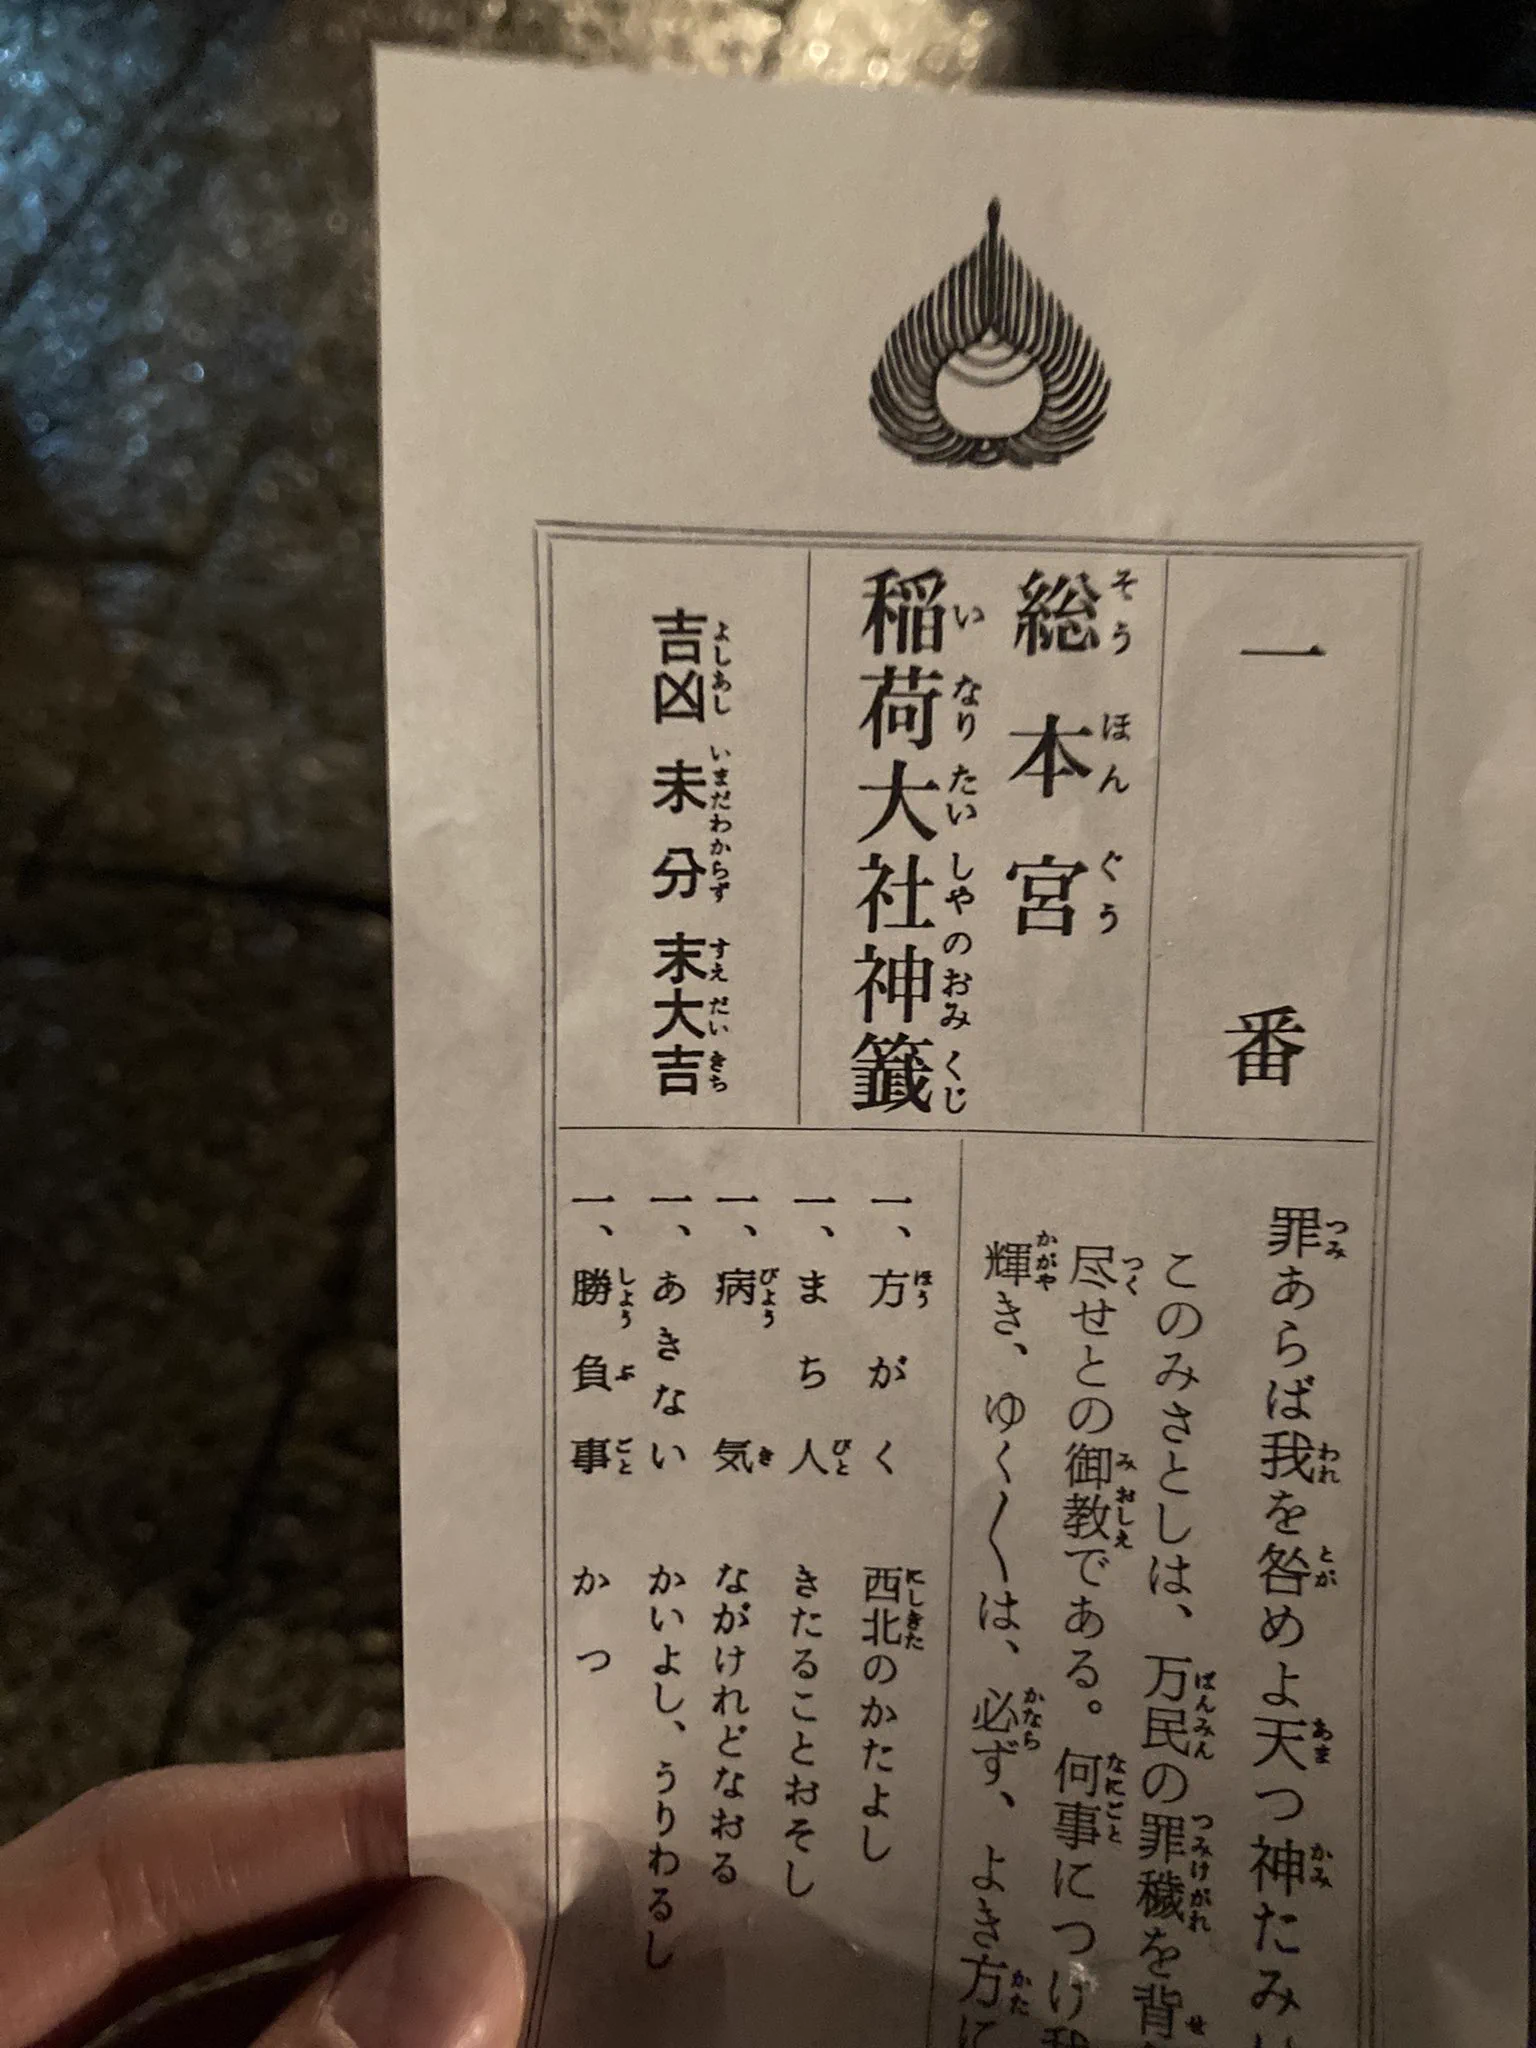 一番
総本宮
稲荷大社神籤
吉凶未分末大吉
罪あらば我を咎めよ天つ神たみ
このみさとしは、万民の罪穢を背
尽せとの御教である。何事につけ我
輝き、ゆく〳〵は、必ず、よき方に
一、方がく 西北のかたよし
一、まち人 きたることおそし
一、病気 ながけれどなおる
一、あきない かいよし、うりわるし
一、勝負事 かつ